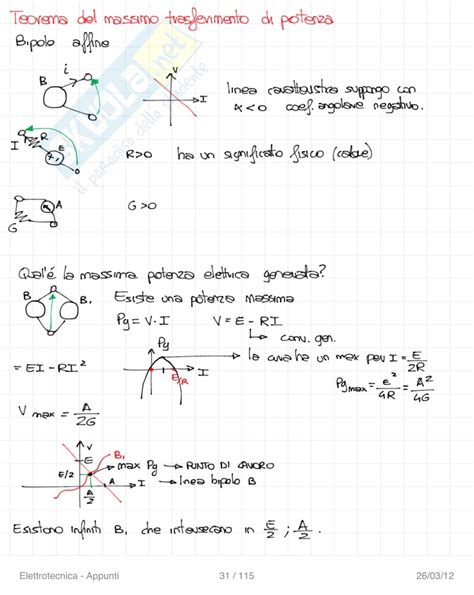 Teorema del massimo trasferimento di potenza
Bipolo affine
B i
V
I
linea caratteristica suppongo con
α < 0 coef. angolare negativo.
I R E
R>0 ha un significato fisico (calore)
A
G
G>0
Qual'é la massima potenza elettrica generata?
B B₁ Esiste una potenza massima
Pg = V·I V = E - RI
conv. gen.
Pg
la curva ha un max per I = E/2R
= EI - RI²
E/R I
Pg max = E²/4R = A²/4G
V max = A/2G
V
E B₁
max Pg → PUNTO DI LAVORO
E/2
I → linea bipolo B
A/2 A
Esistono infiniti B₁ che intersecano in E/2 ; A/2.
Elettrotecnica - Appunti 31 / 115 26/03/12